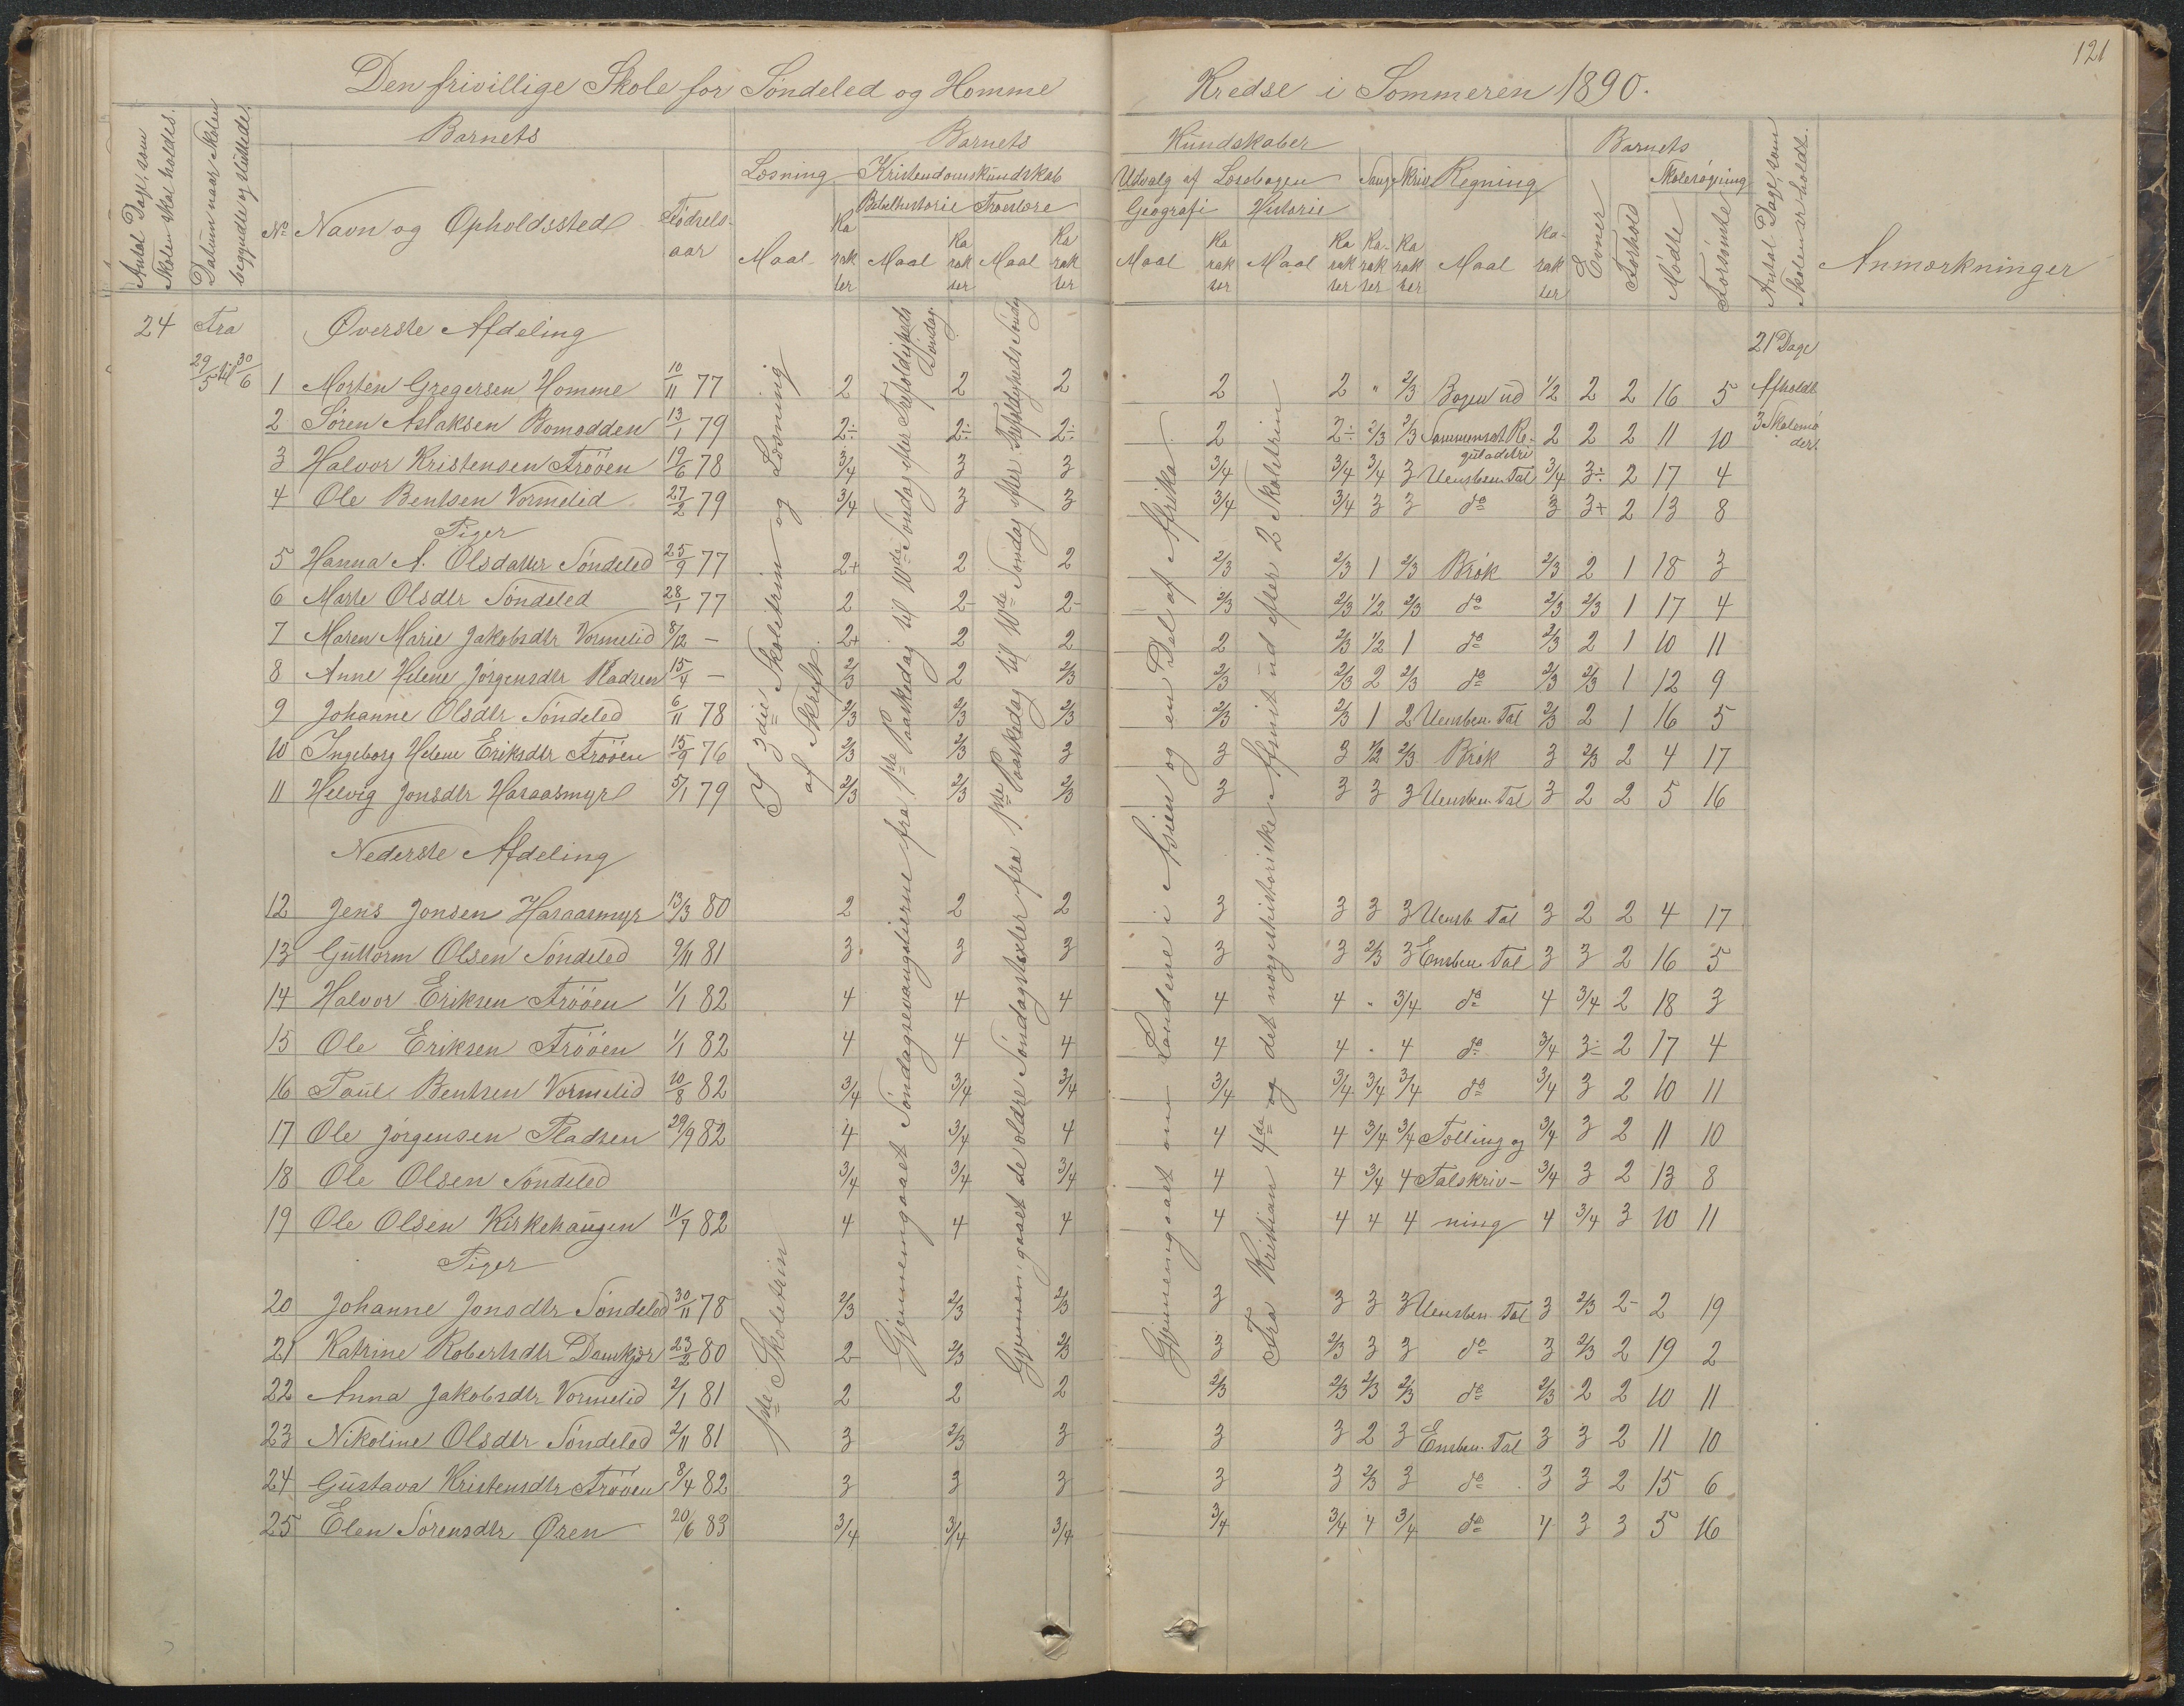 121
Den frivillige Skole for Søndeled og Homme Kredse i Sommeren 1890.
Antal Dage, som Skolen skal holdes.
Datum naar Skolen begyndte og sluttede.
Barnets
No Navn og Opholdssted Fødselsaar
Barnets Kundskaber
Læsning Kristendomskundskab Udvalg af Læsebogen Sang Skriv. Regning
Bibelhistorie Troeslære Geografi Historie
Maal Karakter Maal Karakter Maal Karakter Maal Karakter Maal Karakter Karakter Karakter Maal Karakter
Barnets
Evner Forhold Skolesøgning Mødte Forsømte
Antal Dage, som Skolen er holdt.
Anmærkninger
24 Fra 29/5 til 30/6
Øverste Afdeling
21 Dage
1 Morten Gregersen Homme 10/11 77 2 2 2 2 2 " 2/3 Bogen ud 1/2 2 2 16 5 Afholdt
2 Søren Aslaksen Bomodden 13/1 79 2÷ 2÷ 2÷ 2 2÷ 2/3 2/3 Sammensat Re- 2 2 2 11 10 3 Skolemø
guladetri der.
3 Halvor Kristensen Trøöen 19/6 78 3/4 3 3 3/4 3/4 3/4 3 Uensben. Tal 3/4 3÷ 2 17 4
4 Ole Bentsen Vormelid 27/2 79 3/4 3 3 3/4 3/4 3 3 do 3 3+ 2 13 8
Piger
5 Hanna A. Olsdatter Søndeled 25/9 77 2+ 2 2 2/3 2/3 1 2/3 Brøk 2/3 2 1 18 3
6 Marte Olsdtr Søndeled 28/1 77 2 2- 2- 2/3 2/3 1/2 2/3 do 2/3 2/3 1 17 4
7 Maren Marie Jakobsdtr Vormelid 8/12 — 2+ 2 2 2 2/3 1/2 1 do 2/3 2 1 10 11
8 Anne Helene Jørgensdtr Pladsen 15/4 — 2/3 2 2/3 2/3 2/3 2 2/3 do 2/3 2/3 1 12 9
9 Johanne Olsdtr Søndeled 6/11 78 2/3 2/3 2/3 2/3 2/3 1 2 Uensben. Tal 2/3 2 1 16 5
10 Ingeborg Helene Eriksdtr Trøöen 15/9 76 2/3 2/3 3 3 3 1/2 2/3 Brøk 3 2/3 2 4 17
11 Helvig Jonsdtr Haraasmyr 5/1 79 2/3 2/3 2/3 3 3 3 3 Uensben. Tal 3 2 2 5 16
Nederste Afdeling
12 Jens Jonsen Haraasmyr 13/3 80 2 2 2 3 3 3 3 Uensb. Tal 3 2 2 4 17
13 Guttorm Olsen Søndeled 9/11 81 3 3 3 3 3 2/3 3 Ensben. Tal 3 3 2 16 5
14 Halvor Eriksen Trøöen 1/1 82 4 4 4 4 4 " 3/4 do 4 3/4 2 18 3
15 Ole Eriksen Trøöen 1/1 82 4 4 4 4 4 " 4 do 3/4 3÷ 2 17 4
16 Paul Bentsen Vormelid 10/8 82 3/4 3/4 3/4 3/4 3/4 3/4 3/4 do 3/4 3 2 10 11
17 Ole Jørgensen Pladsen 29/9 82 4 3/4 4 4 4 3/4 3/4 Tælling og 3/4 3 2 11 10
18 Ole Olsen Søndeled 3/4 3/4 3/4 4 4 3/4 4 Talskriv- 3/4 3 2 13 8
19 Ole Olsen Kirkehaugen 11/7 82 4 4 4 4 4 4 4 ning 4 3/4 3 10 11
Piger
20 Johanne Jonsdtr Søndeled 30/11 78 2/3 2/3 2/3 3 3 3 3 Uensben. Tal 3 2/3 2- 2 19
21 Katrine Robertsdtr Damkjær 23/2 80 2- 2/3 2/3 3 2/3 3 3 do 3 2/3 2 19 2
22 Anna Jakobsdtr Vormelid 2/1 81 2 2 2 2/3 2/3 2/3 2/3 do 2/3 2 2 10 11
23 Nikoline Olsdtr Søndeled 2/11 81 3 2/3 3 3 3 2 3 Ensben. Tal 3 3 2 11 10
24 Gustava Kristensdtr Trøöen 8/4 82 3 3 3 3 3 2/3 3 do 3 3 2 15 6
25 Elen Sørensdtr Øren 20/6 83 3/4 3/4 3/4 3/4 3/4 4 3/4 do 4 3 3 5 16
I 3die Skoletrin og Læsning
af Skrift.
1ste Skoletrin
Gjennemgaaet Søndagsevangelierne fra 1ste Paaskedag til 10de Søndag efter Trefoldigheds
Søndag.
Gjennemgaaet de ældre Søndagstexter fra 1ste Paaskedag til 10de Søndag efter Trefoldigheds Søndag
Gjennemgaaet om Landene i Asien og en Del af Afrika.
Fra Kristian 4de og det norgeshistoriske Afsnit ud efter 2 Skoletrin